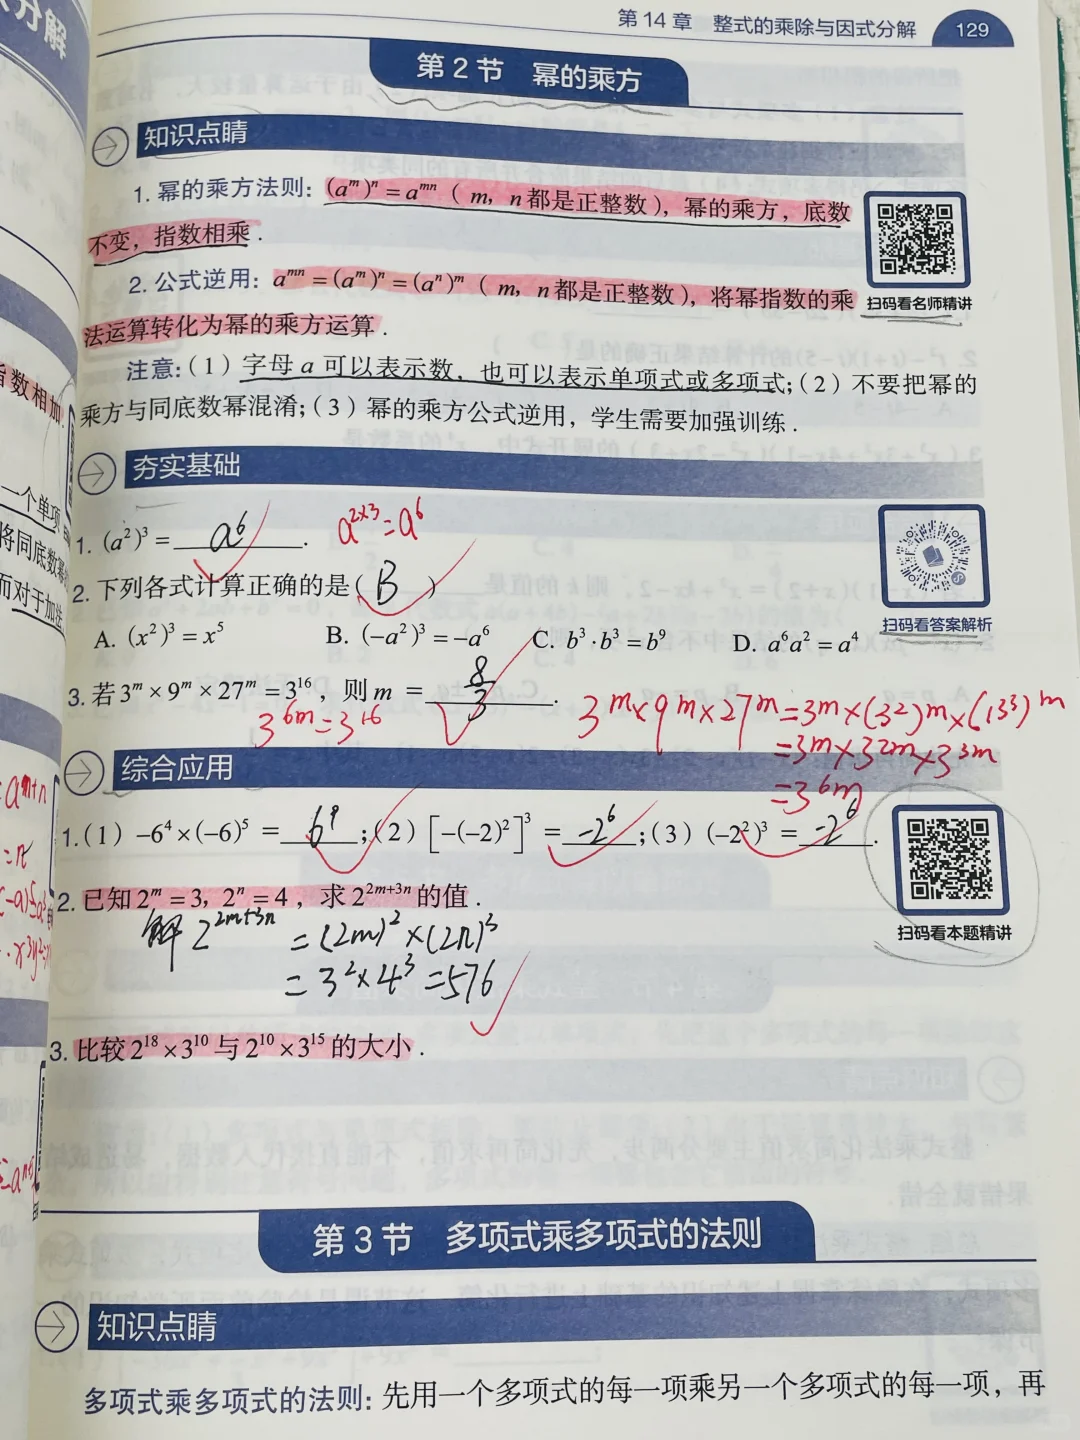 分解
第 14 章 整式的乘除与因式分解 129
第 2 节 幂的乘方
知识点睛
1. 幂的乘方法则：(aᵐ)ⁿ = aᵐⁿ（ m，n 都是正整数），幂的乘方，底数
不变，指数相乘．
2. 公式逆用：aᵐⁿ = (aᵐ)ⁿ = (aⁿ)ᵐ（ m，n 都是正整数），将幂指数的乘
法运算转化为幂的乘方运算．
扫码看名师精讲
注意：（1）字母 a 可以表示数，也可以表示单项式或多项式；（2）不要把幂的
乘方与同底数幂混淆；（3）幂的乘方公式逆用，学生需要加强训练．
指数相加
一个单项
将同底数幂
而对于加法
夯实基础
1. (a²)³ = a⁶ . a²ˣ³=a⁶
2. 下列各式计算正确的是( B )
A. (x²)³ = x⁵ B. (−a²)³ = −a⁶ C. b³·b³ = b⁹ D. a⁶a² = a⁴
扫码看答案解析
3. 若 3ᵐ × 9ᵐ × 27ᵐ = 3¹⁶，则 m = 8/3 .
3⁶ᵐ=3¹⁶
3ᵐ×9ᵐ×27ᵐ=3ᵐ×(3²)ᵐ×(3³)ᵐ
=3ᵐ×3²ᵐ×3³ᵐ
=3⁶ᵐ
综合应用
1.（1）−6⁴×(−6)⁵ = 6⁹ ;（2）[−(−2)²]³ = −2⁶ ;（3）(−2²)³ = −2⁶ .
2. 已知 2ᵐ = 3，2ⁿ = 4，求 2²ᵐ⁺³ⁿ 的值．
解 2²ᵐ⁺³ⁿ =(2m)²×(2n)³
=3²×4³=576
扫码看本题精讲
3. 比较 2¹⁸×3¹⁰ 与 2¹⁰×3¹⁵ 的大小．
第 3 节 多项式乘多项式的法则
知识点睛
多项式乘多项式的法则：先用一个多项式的每一项乘另一个多项式的每一项，再